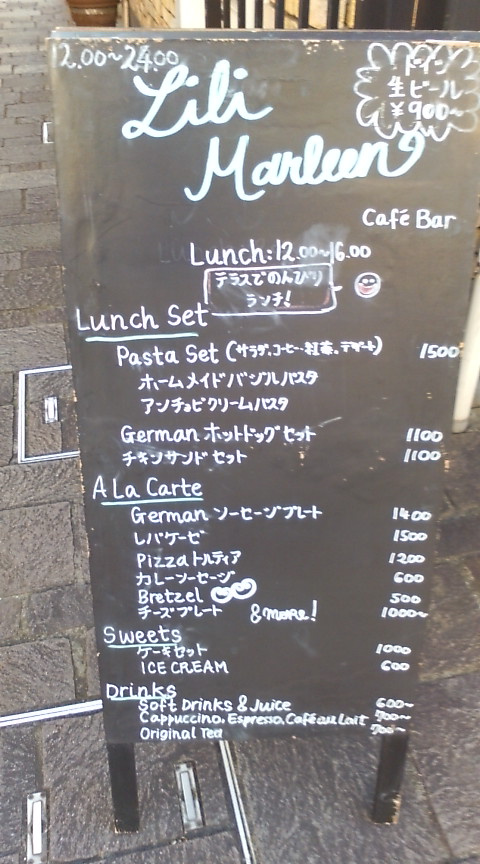 12.00~24.00
ドイツ
生ビール
¥900~
Lili
Marleen
Café Bar
Lunch:12.00~16.00
テラスでのんびり
ランチ!
Lunch Set
Pasta Set (サラダ,コーヒー・紅茶。デザート) 1500
ホームメイドバジルパスタ
アンチョビクリームパスタ
German ホットドッグセット 1100
チキンサンドセット 1100
A La Carte
German ソーセージプレート 1400
レバケーゼ 1500
Pizza トルティア 1200
カレーソーセージ 600
Bretzel 500
チーズプレート & more! 1000~
Sweets
ケーキセット 1000
ICE CREAM 600
Drinks
Soft Drinks & Juice 600~
Cappuccino, Espresso, Café au Lait 700~
Original Tea 700~